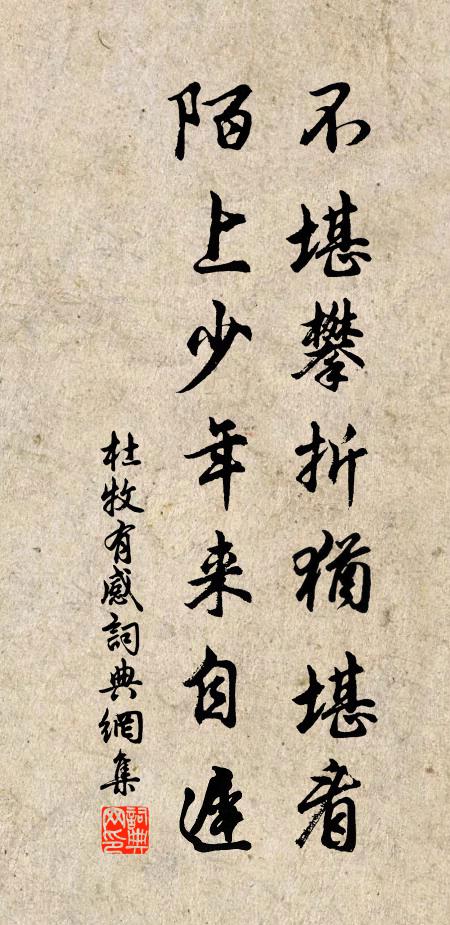 不堪攀折猶堪看
陌上少年来自遲
杜牧有感詞典網集
詞典
网印